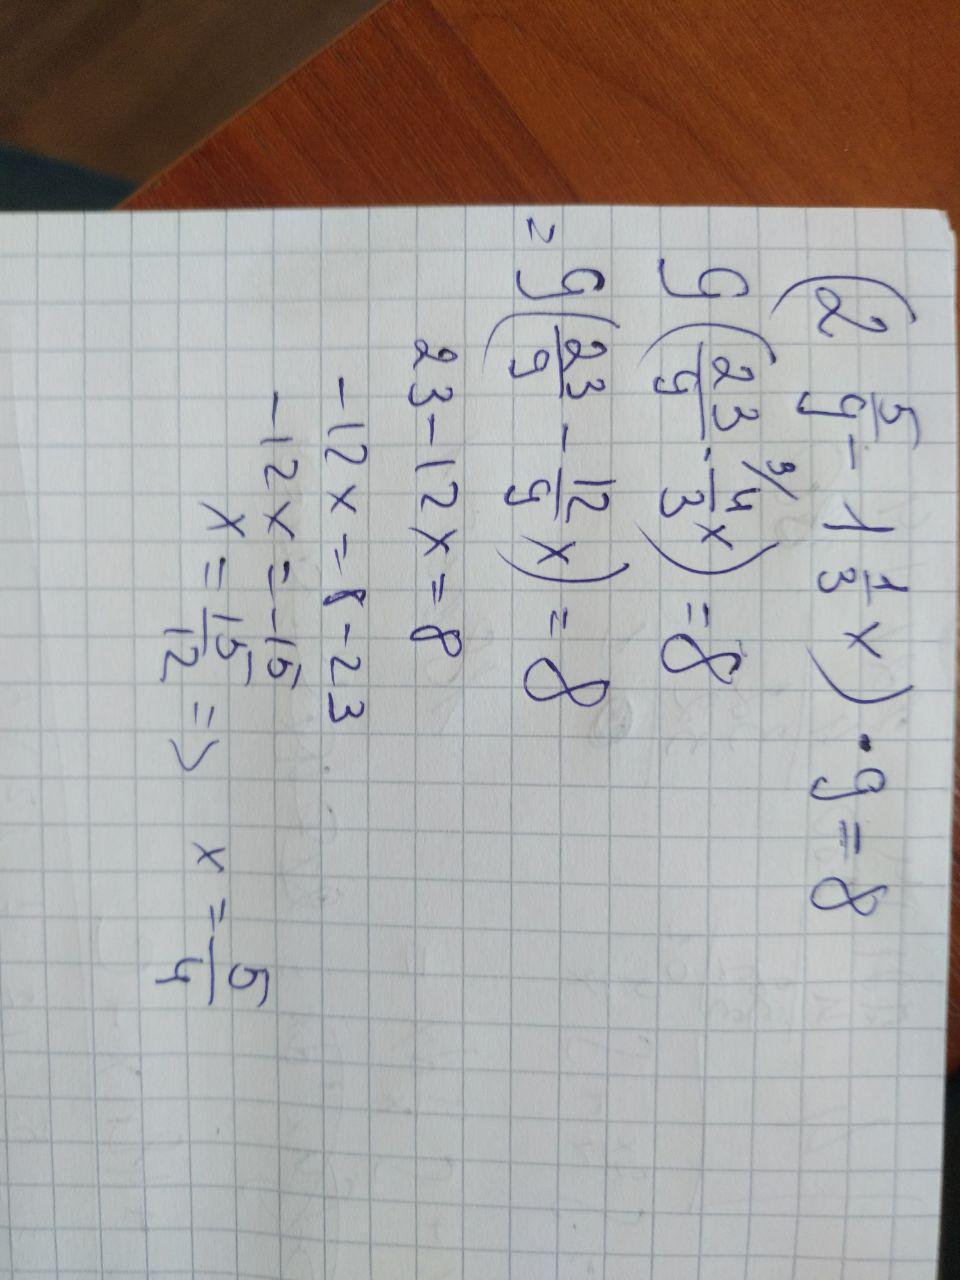 (2 5/9 - 1 1/3 x) · 9 = 8
9(23/9 - 3/ 4/3 x) = 8
= 9(23/9 - 12/9 x) = 8
23 - 12x = 8
-12x = 8 - 23
-12x = -15
x = 15/12 => x = 5/4